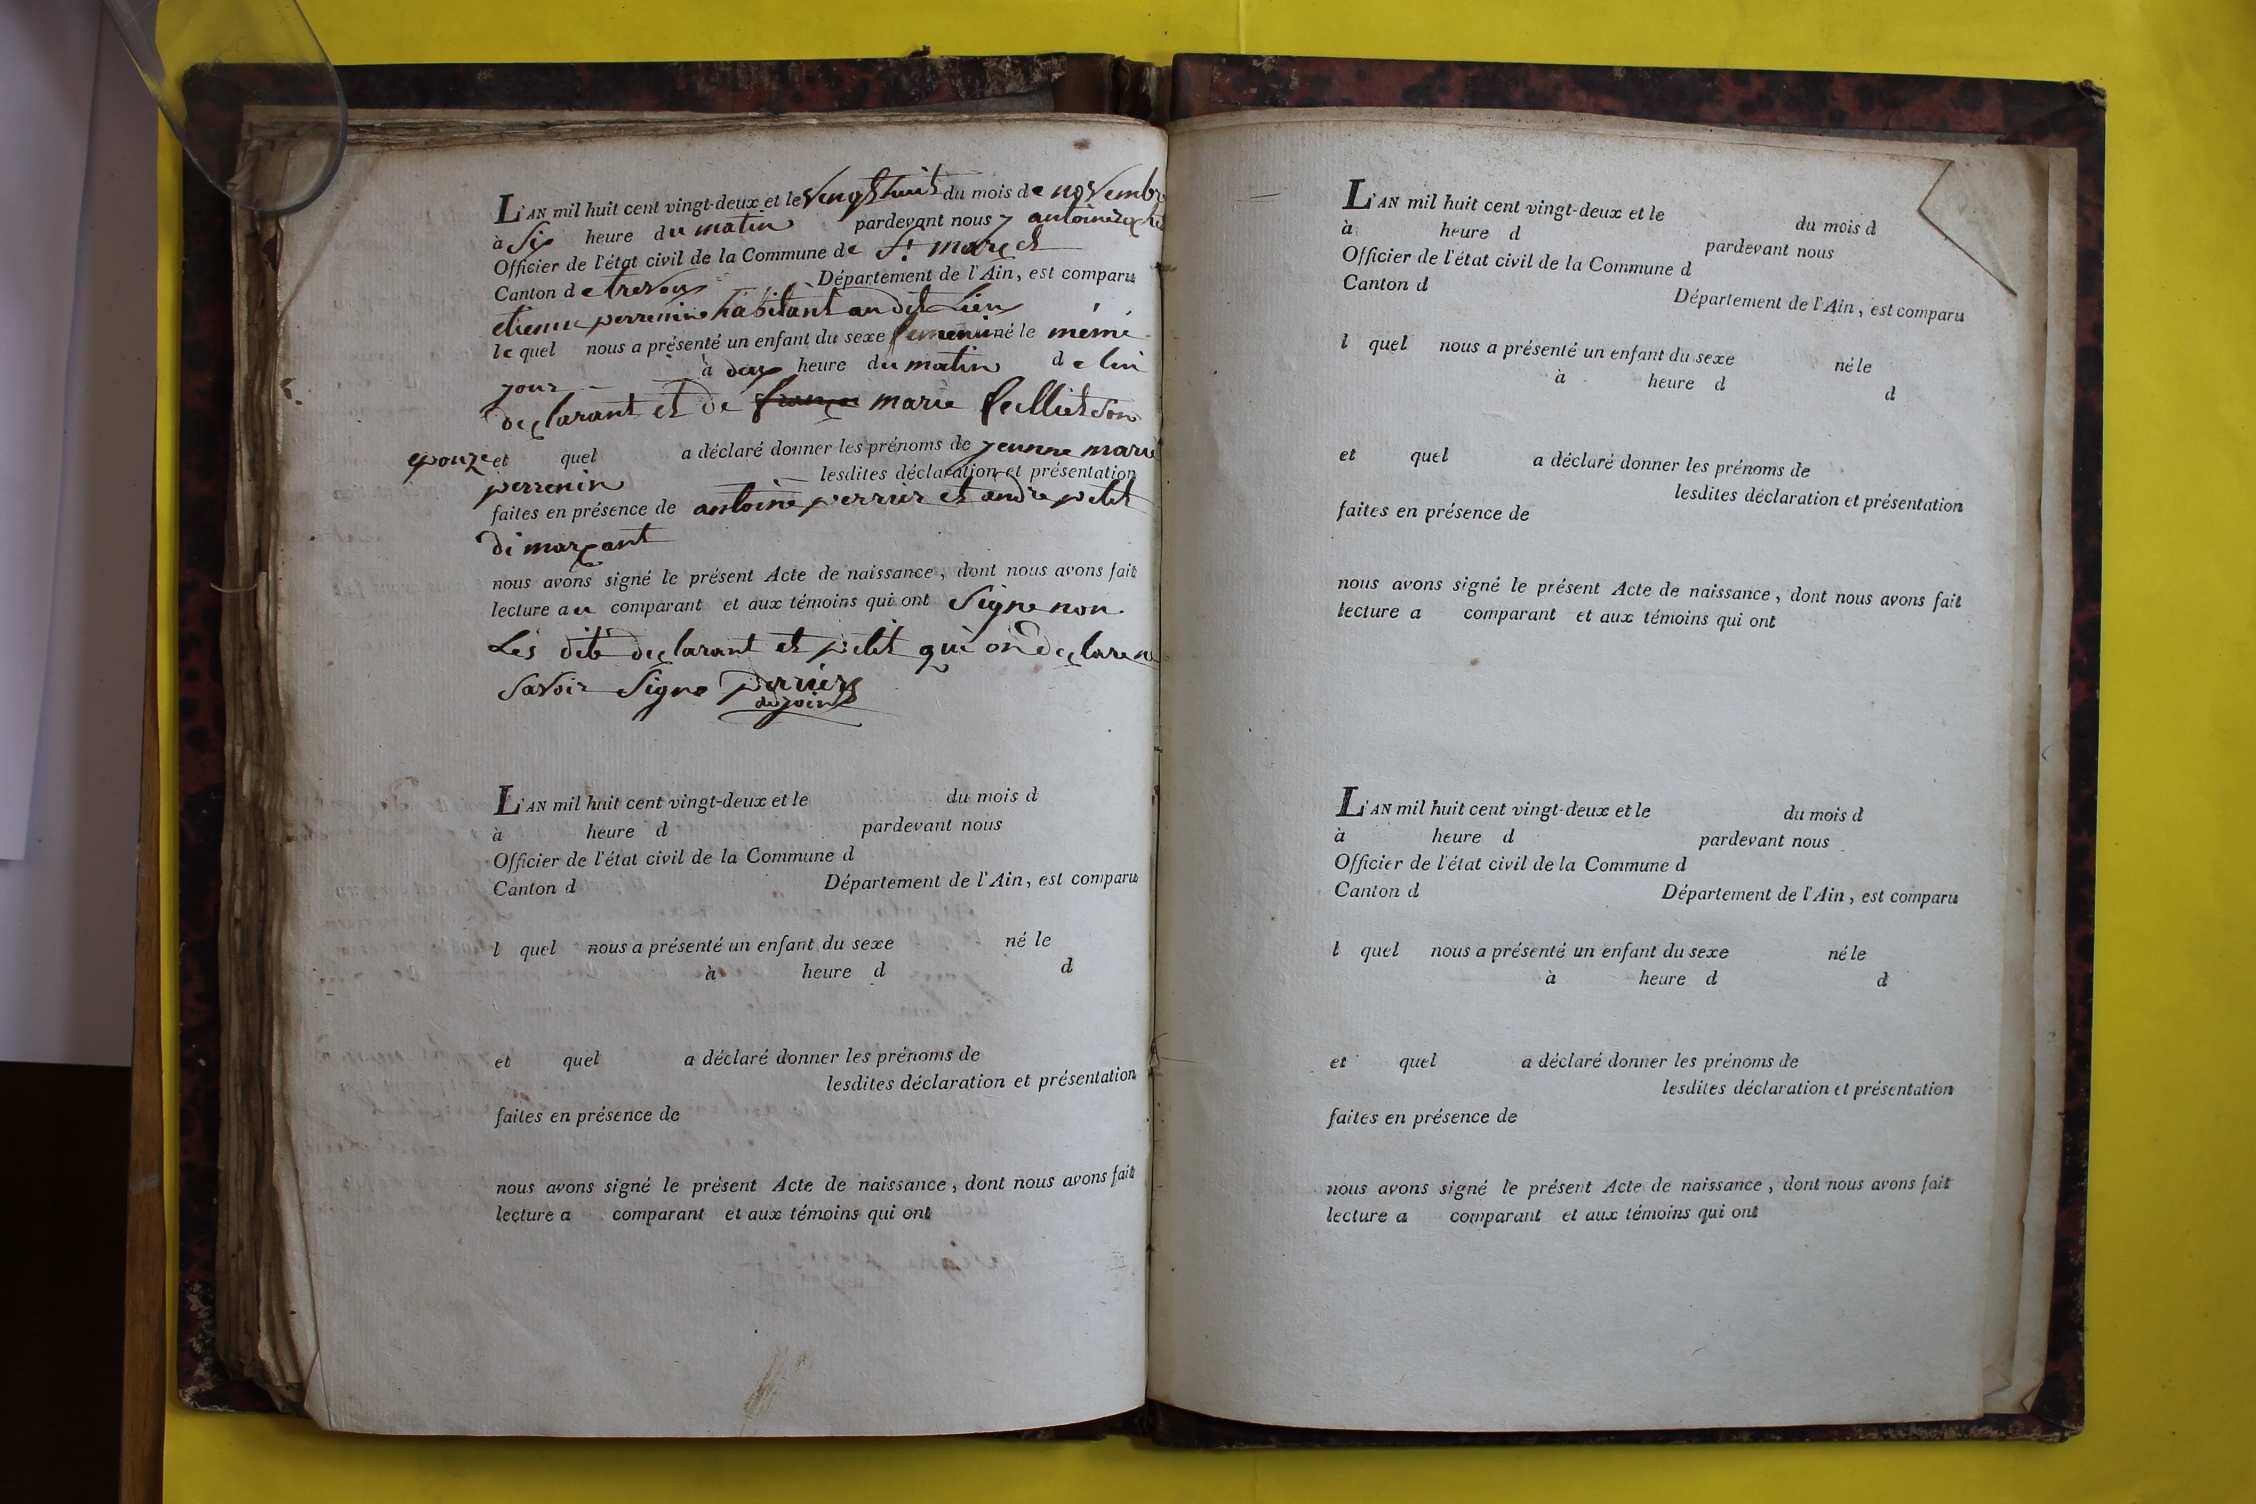 L'AN mil huit cent vingt-deux et le vingt huit du mois de novembre
à Six heure du matin pardevant nous antoine
Officier de l'état civil de la Commune de St. marcel
Canton de trevoux Département de l'Ain, est comparu
etienne perrenin habitant au dit Lieu
le quel nous a présenté un enfant du sexe femenin né le méme
jour à deux heure du matin de lui
declarant et de marie felliet son
epouze et quel a déclaré donner les prénoms de jeanne marie
perrenin lesdites déclaration et présentation
faites en présence de antoine perrier et andre petit
di marcant
nous avons signé le présent Acte de naissance, dont nous avons fait
lecture au comparant et aux témoins qui ont Signe non
Les dits declarant et petit qui on declare ne
Savoir Signe perrier
adjoint
L'AN mil huit cent vingt-deux et le du mois d
à heure d pardevant nous
Officier de l'état civil de la Commune d
Canton d Département de l'Ain, est comparu
l quel nous a présenté un enfant du sexe né le
à heure d d
et quel a déclaré donner les prénoms de
lesdites déclaration et présentation
faites en présence de
nous avons signé le présent Acte de naissance, dont nous avons fait
lecture a comparant et aux témoins qui ont
L'AN mil huit cent vingt-deux et le du mois d
à heure d pardevant nous
Officier de l'état civil de la Commune d
Canton d Département de l'Ain, est comparu
l quel nous a présenté un enfant du sexe né le
à heure d d
et quel a déclaré donner les prénoms de
lesdites déclaration et présentation
faites en présence de
nous avons signé le présent Acte de naissance, dont nous avons fait
lecture a comparant et aux témoins qui ont
L'AN mil huit cent vingt-deux et le du mois d
à heure d pardevant nous
Officier de l'état civil de la Commune d
Canton d Département de l'Ain, est comparu
l quel nous a présenté un enfant du sexe né le
à heure d d
et quel a déclaré donner les prénoms de
lesdites déclaration et présentation
faites en présence de
nous avons signé le présent Acte de naissance, dont nous avons fait
lecture a comparant et aux témoins qui ont